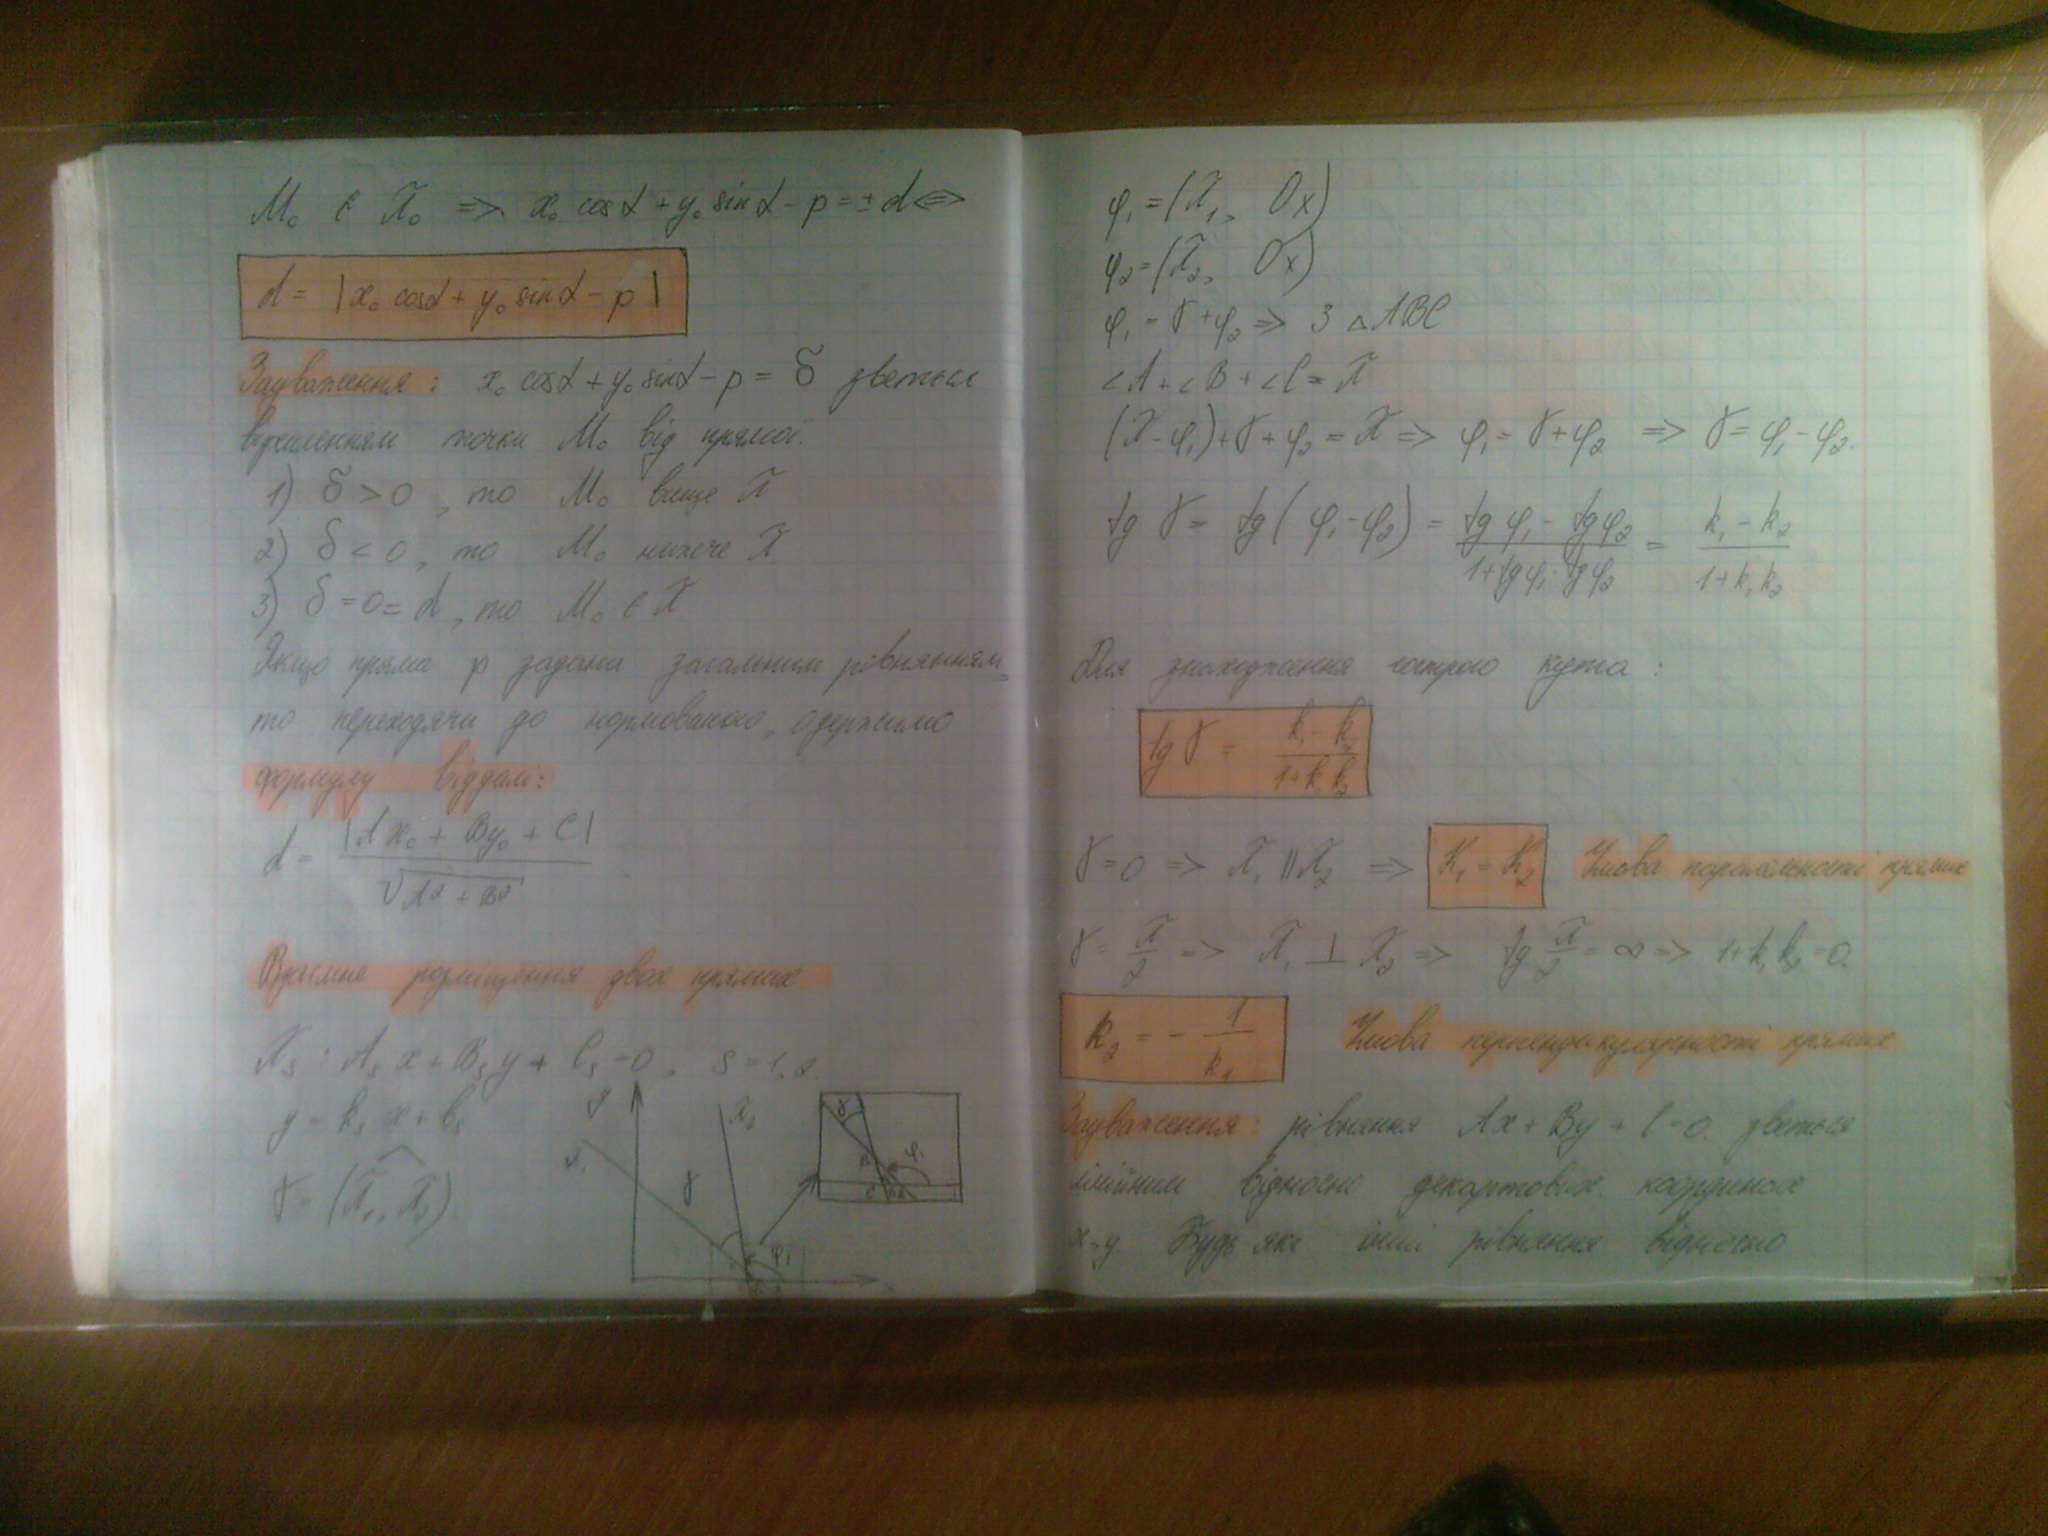 M₀ ∈ π₀ => x₀ cosα + y₀ sinα - p = ± d <=>
d = |x₀ cosα + y₀ sinα - p|
Зауваження: x₀ cosα + y₀ sinα - p = δ зветься
відхиленням точки M₀ від прямої.
1) δ > 0, то M₀ вище π
2) δ < 0, то M₀ нижче π.
3) δ = 0 = d, то M₀ ∈ π.
Якщо пряма р задана загальним рівнянням
то переходячи до нормованого, одержимо
формулу віддалі:
d = |Ax₀ + By₀ + C| / √(A² + B²)
Взаємне розміщення двох прямих
πₛ : Aₛ x + Bₛ y + Cₛ = 0, s = 1, 2.
y = kₛ x + bₛ
γ = (π₁, π₂)
y π₁ γ π₂ φ₁ x
γ φ₁ C
φ₁ = (π₁, Ox)
φ₂ = (π₂, Ox)
φ₁ = γ + φ₂ => З △ABC
∠A + ∠B + ∠C = π
(π - φ₁) + γ + φ₂ = π => φ₁ = γ + φ₂ => γ = φ₁ - φ₂.
tg γ = tg (φ₁ - φ₂) = (tg φ₁ - tg φ₂) / (1 + tg φ₁ · tg φ₂) = (k₁ - k₂) / (1 + k₁ k₂)
Для знаходження гострого кута :
tg γ = (k₁ - k₂) / (1 + k₁ k₂)
γ = 0 => π₁ || π₂ => K₁ = K₂ Умова паралельності прямих
γ = π/2 => π₁ ⊥ π₂ => tg π/2 = ∞ => 1 + k₁ k₂ = 0.
k₂ = - 1/k₁ Умова перпендикулярності прямих
Зауваження: рівняння Ax + By + C = 0. зветься
лінійним відносно декартових координат
x, y. Будь яке інші рівняння відносно